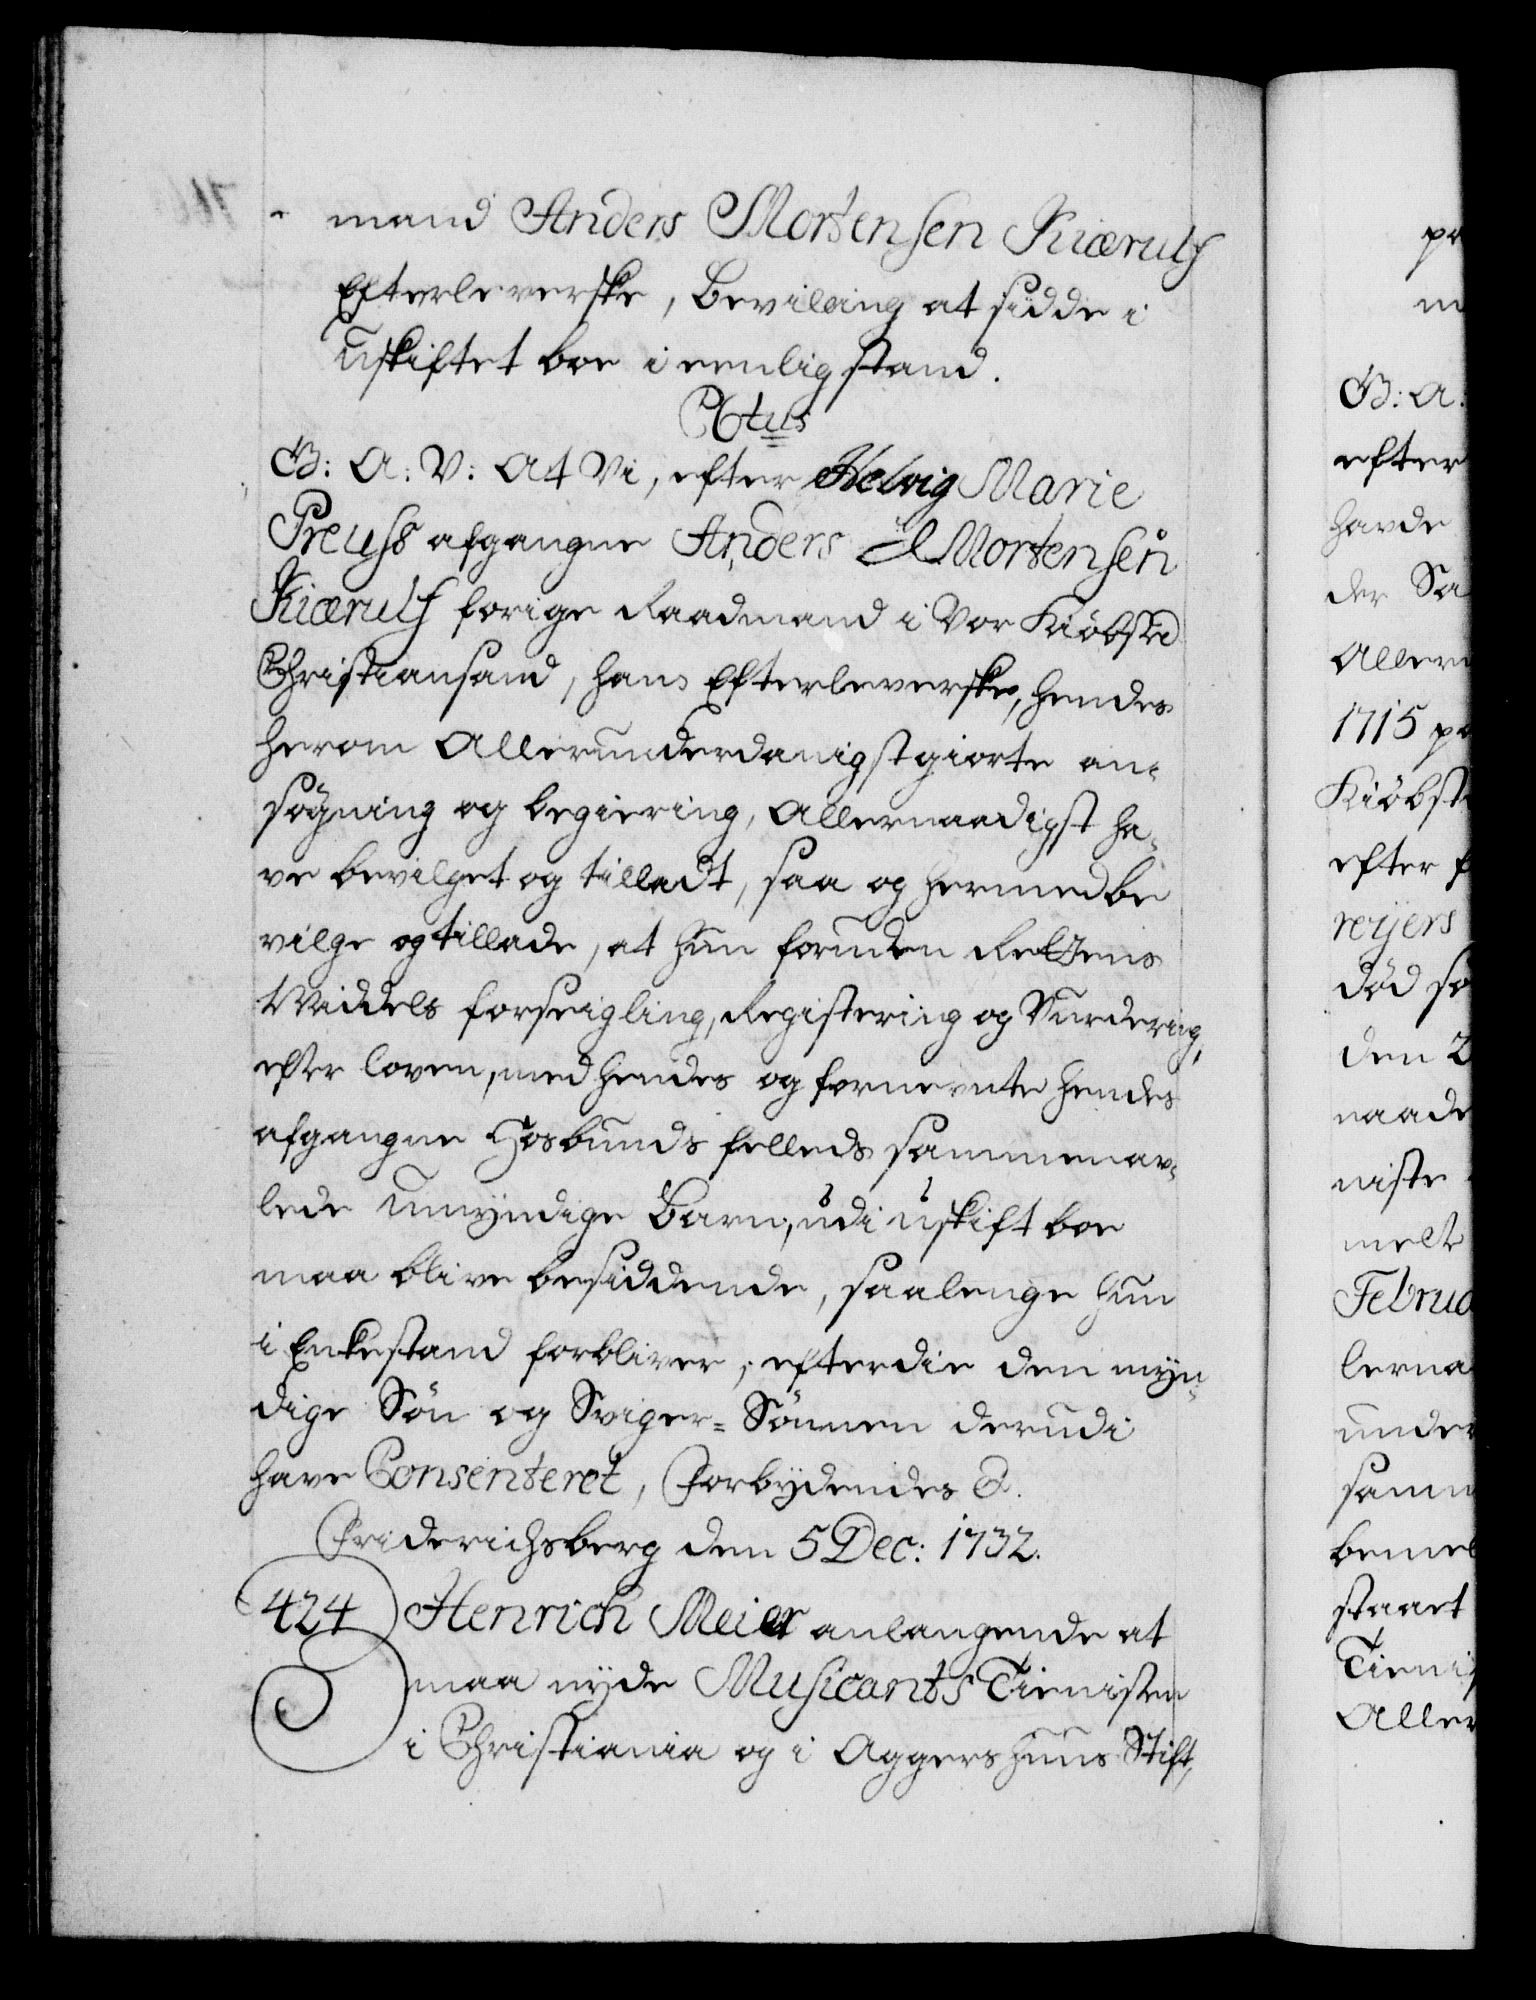 mand Anders Mortensen Kiærulf
Efterleverske, Bevilling at sidde i
uskiftet boe i eenlig stand.
Ctus
G: A: V: At Vi, efter Helvig Marie
Preuss afgangne Anders Mortensen
Kiærulf forige Raadmand i Vor Kiöbsted
Christiansand, hans Efterleverske, hendes
herom Allerunderdanigst giorte an-
søgning og begiering, Allernaadigst ha-
ve bevilget og tilladt, saa og hermed be
vilge og tillade, at hun foruden Rettens
Middels forseigling, Registering og Vurdering,
efter loven, med hendes og fornevnte hendes
afgangne Hosbunds felleds sammenav-
lede umyndige Barn, udi uskift boe
maa blive besiddende, saalenge hun
i Enkestand forbliver, efterdie den myn-
dige Søn og Sviger-Sønnen derudi
have Consenteret, Forbydendes &.
Friderichsberg den 5 Dec: 1732.
424 Henrich Meier anlangende at
maa nyde Musicants Tienisten
i Christiania og i Aggershuus Stift,
G: A:
efter
havde
der Sa
Allern
1715 pa
Kiöbste
efter f
reyers
död
den 2
naade
niste
melt
Februa
lerna
under
samm
bemel
staaet
Tienis
Aller